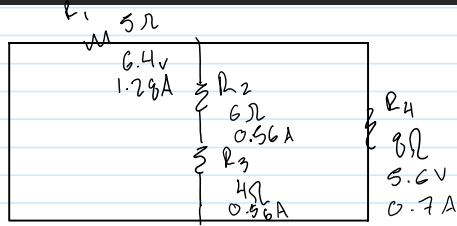 R1 5Ω
6.4v
1.28A
R2
6Ω
0.56A
R3
4Ω
0.56A
R4
8Ω
5.6V
0.7A